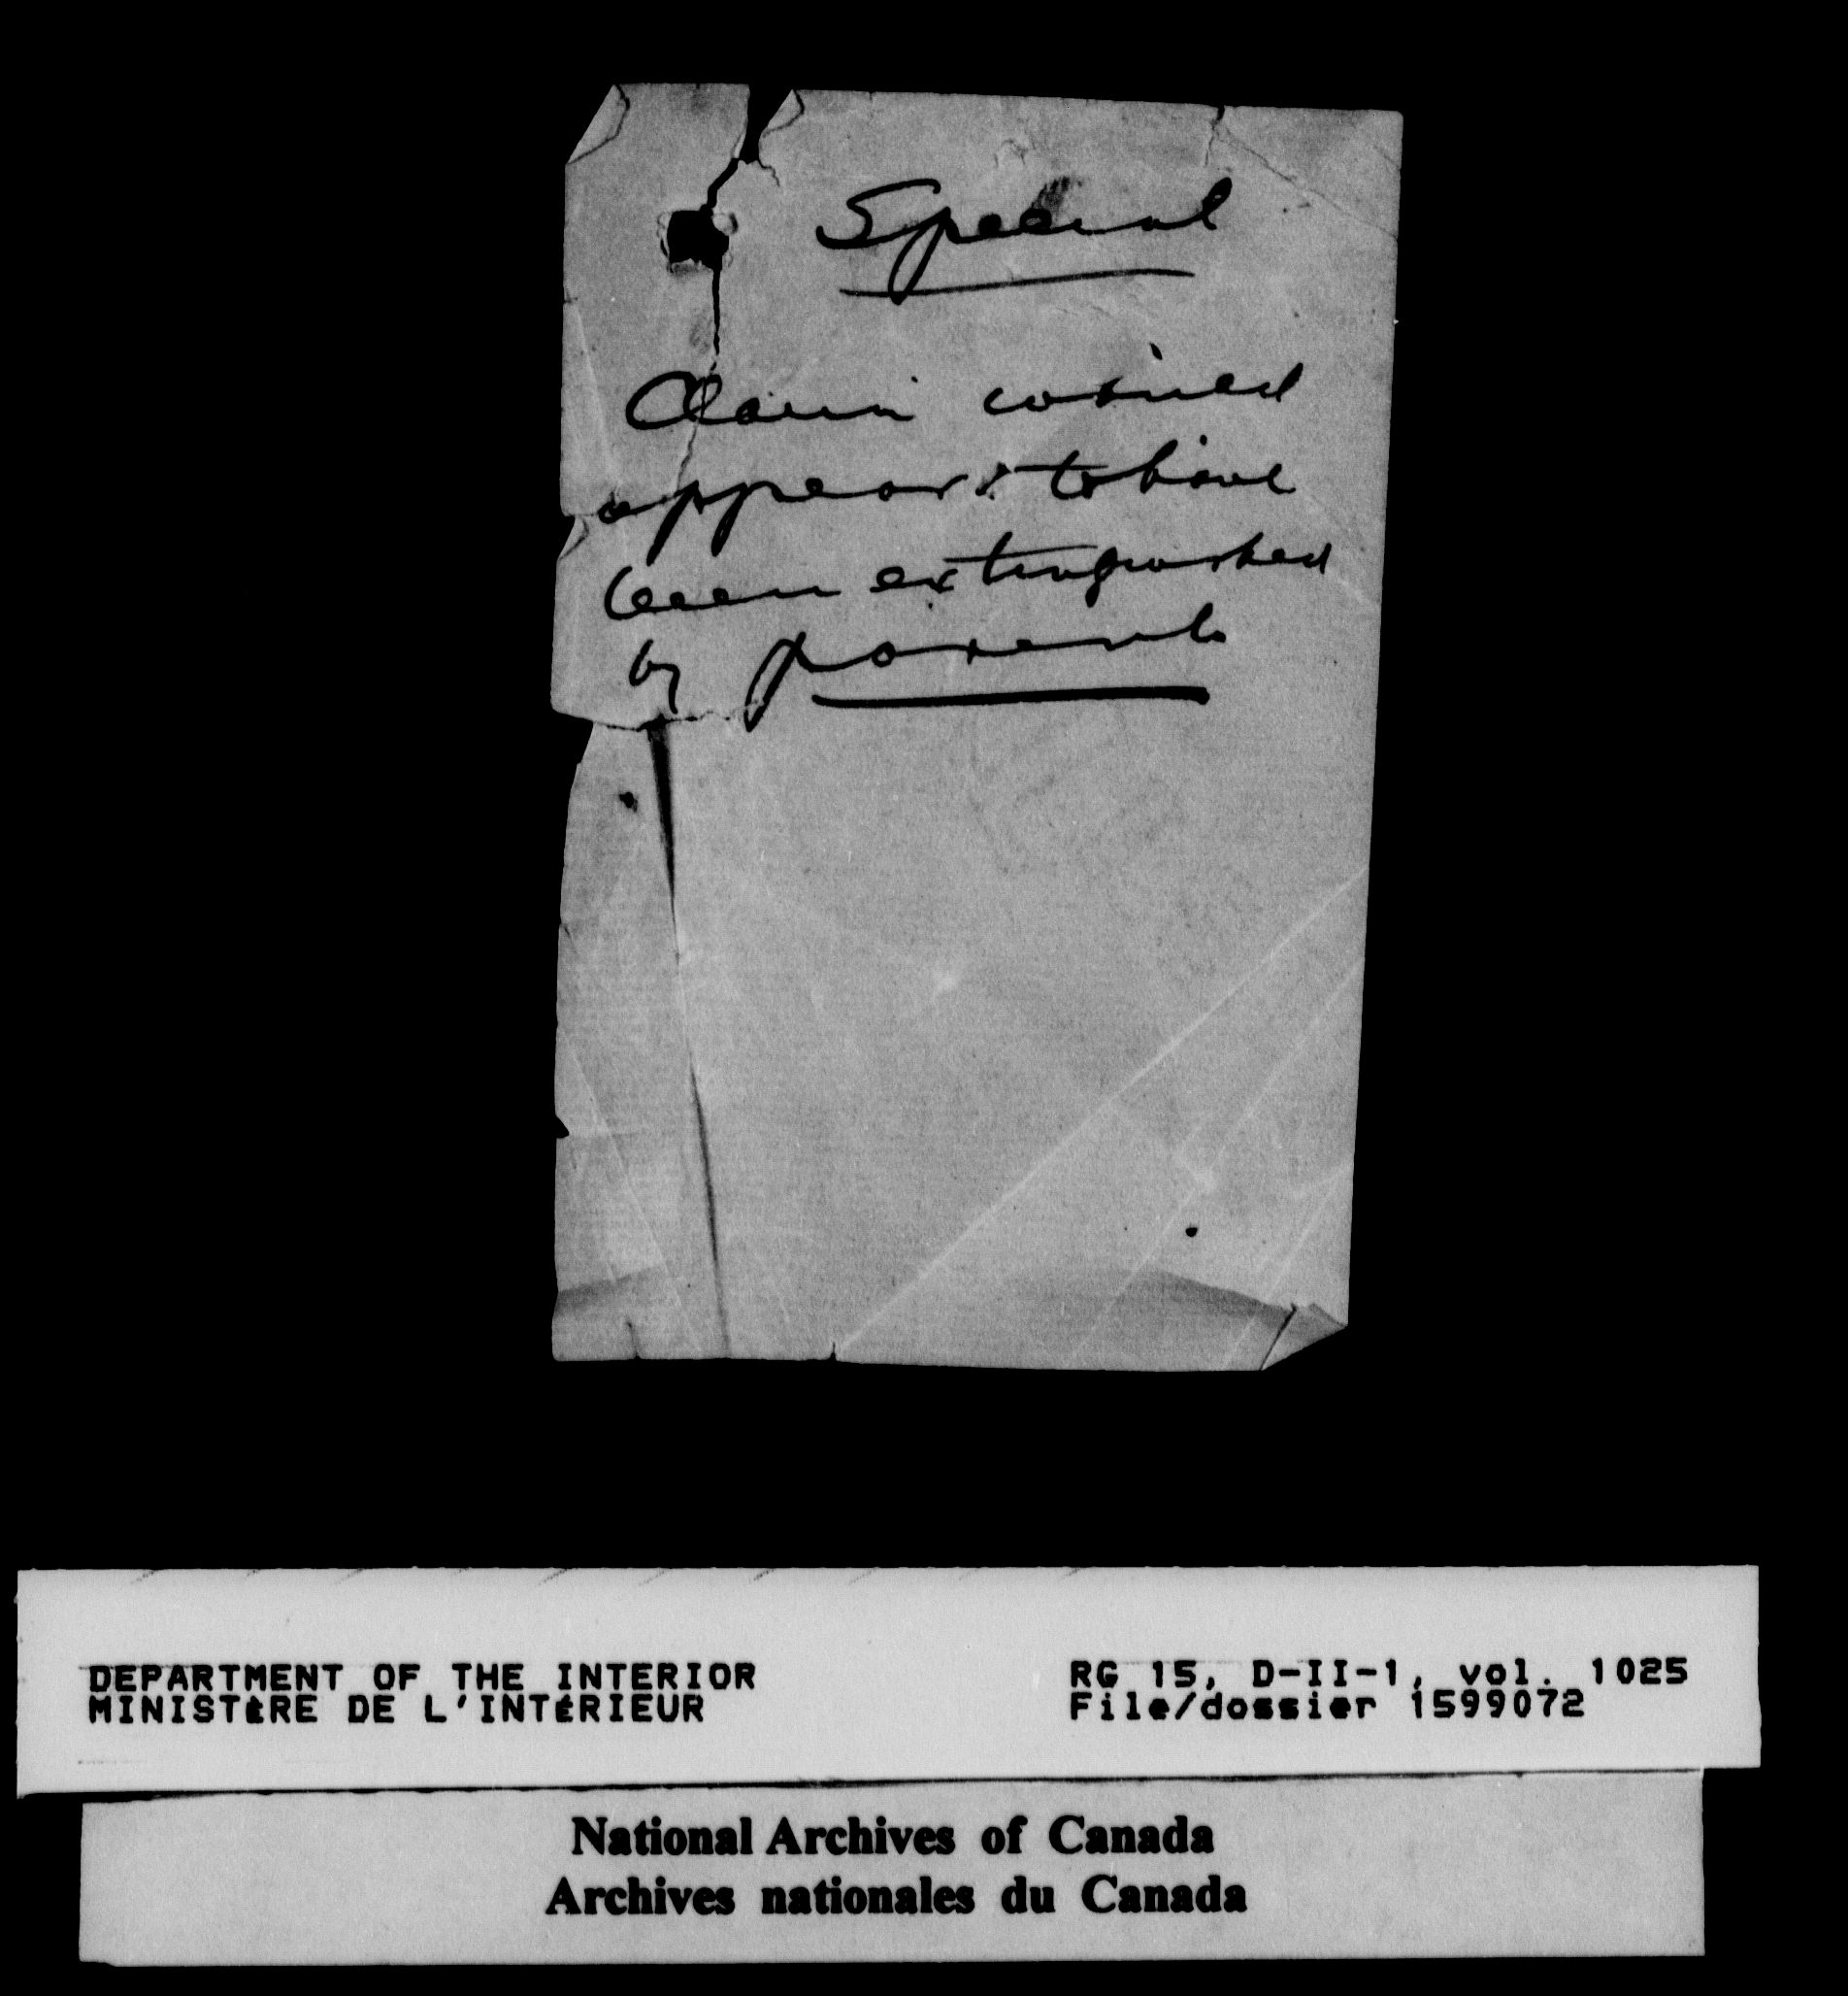 Special
Claim
appears to have
been extinguished
by parents
DEPARTMENT OF THE INTERIOR
MINISTÈRE DE L'INTÉRIEUR
RG 15, D-II-1, vol. 1025
File/dossier 1599072
National Archives of Canada
Archives nationales du Canada